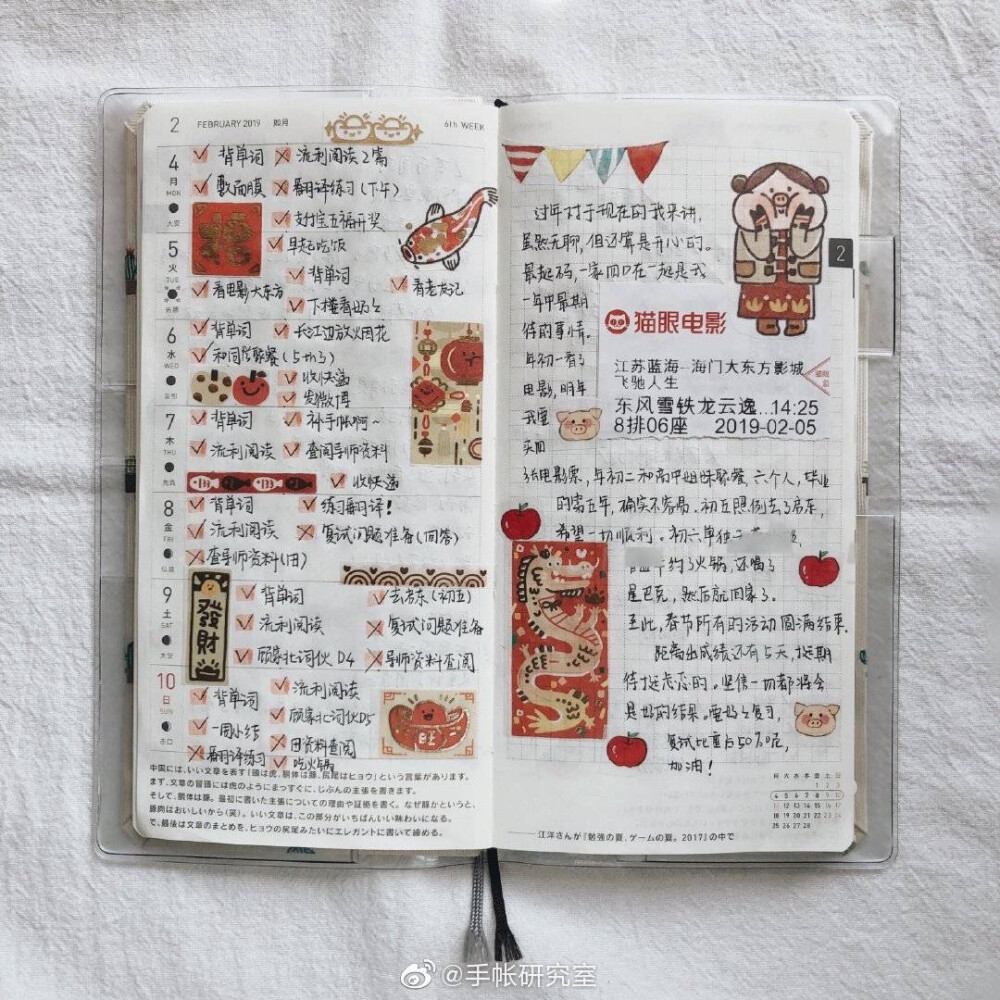 2 FEBRUARY 2019 如月 6th WEEK
4 月 MON 大安
背单词 流利阅读2篇
敷面膜 翻译练习(下午)
支付宝五福开奖
福
5 火 TUE
早起吃饭
背单词
看电影大东方 看老友记
下楼看奶奶
6 水 WED
背单词 长江边放火烟花
和同学聚餐(5th3)
收快递
发微博
7 木 THU 先負
背单词 补手帐啊~
流利阅读 查阅导师资料
收快递
8 金 FRI 仏滅
背单词 练习翻译!
流利阅读 复试问题准备(回答)
查导师资料(旧)
9 土 SAT 大安
發財
背单词 去启东(初五)
流利阅读 复试问题准备
顾家北词伙D4 导师资料查阅
10 日 SUN 赤口
背单词 流利阅读
顾家北词伙D5
一周小结 旧资料查阅
翻译练习 吃火锅
旺
中国には、いい文章を表す「頭は虎、胴体は豚、尻尾はヒョウ」という言葉があります。
まず、文章の冒頭には虎のようにまっすぐに、じぶんの主張を書きます。
そして、胴体は豚。最初に書いた主張についての理由や証拠を書く。なぜ豚かというと、
豚肉はおいしいから(笑)。いい文章は、この部分がいちばんいい味わいになる。
で、最後は文章のまとめを、ヒョウの尻尾みたいにエレガントに書いて締める。
过年对于现在的我来讲,
虽然无聊,但还算是开心的。
最起码,一家四口在一起是我
一年中最期
待的事情。
年初一看了
电影,明年
我要
买四
2
猫眼电影
江苏蓝海--海门大东方影城
飞驰人生
东风雪铁龙云逸...14:25
8排06座 2019-02-05
张电影票,年初二和高中姐妹聚餐,六个人,毕业
的第五年,确实不容易。初五照例去了启东,
希望一切顺利。初六单独
约了火锅,还喝了
星巴克,然后就回家了。
至此,春节所有的活动圆满结束。
距离出成绩还有5天,挺期
待挺忐忑的。坚信一切都将会
是好的结果。要好好复习,
复试比重占50%呢,
加油!
月 火 水 木 金 土 日
1 2 3
4 5 6 7 8 9 10
11 12 13 14 15 16 17
18 19 20 21 22 23 24
25 26 27 28
──江洋さんが『勉強の夏、ゲームの夏。2017』の中で
@手帐研究室